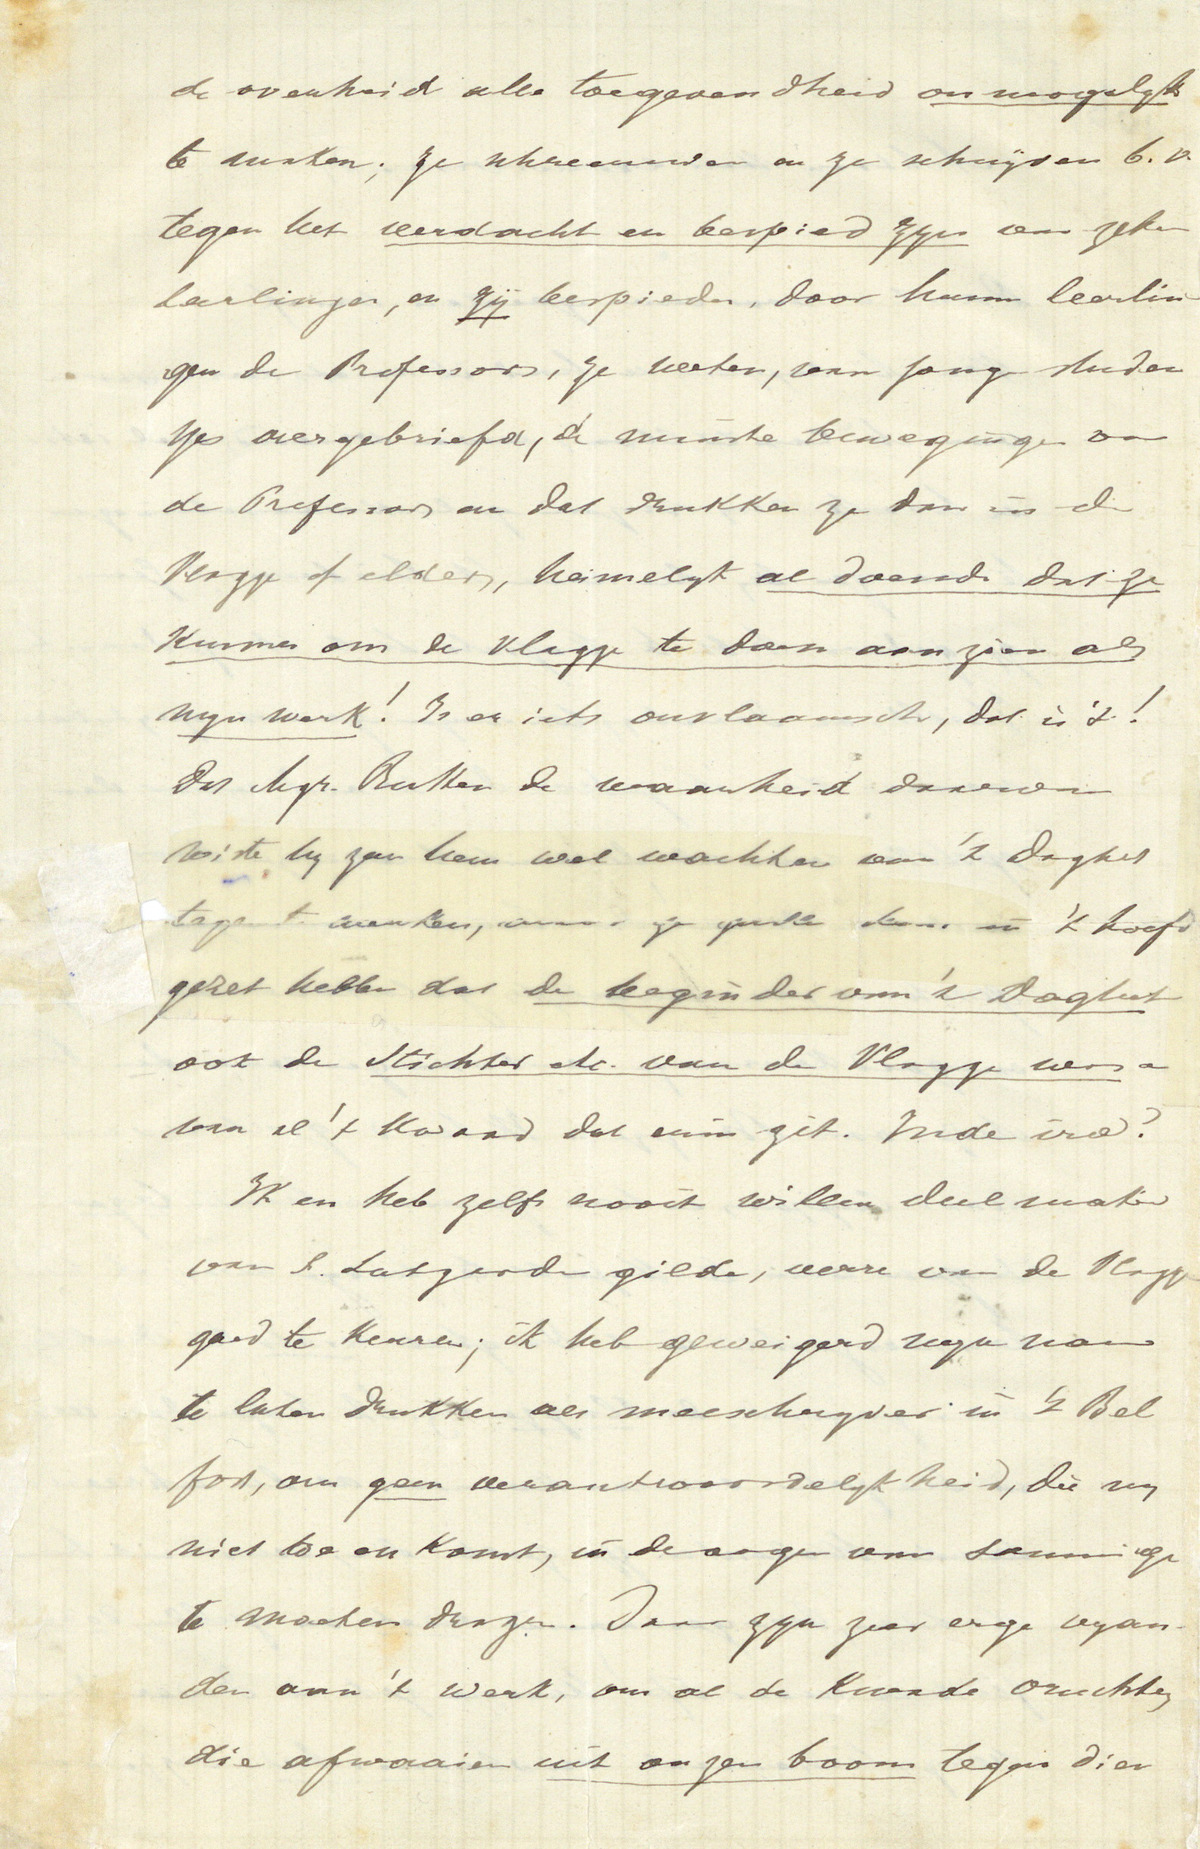 de overheid alle toegevendheid onmogelyk
te maken; ze schreeuwen en ze schryven b.v.
tegen het verdacht en bespied zyn van zeker
leerlingen, en zij bespieden, door hunne leerlin
gen de Professors, ze weten, van jonge studen
tjes overgebriefd, de minste bewegingen van
de Professors en dat drukken ze dan in de
Vlagge of elders, heimelyk al doende dat ze
kunnen om de Vlagge te doen aanzien als
myn werk! Is er iets onvlaamsch, dat is 't!
Dat Mgr. Rutten de waarheid daarvan
wiste hy zou hem wel wachten van 't Daghet
tegen te werken, maar ze zullen hem in 't hoofd
gezet hebben dat de beginder van 't Daghet
ook de stichter etc. van de Vlagge was &
van al 't kwaad dat erin zit. Inde irae?
Ik en heb zelfs nooit willen deelmaken
van S. Lutgarden gilde, verre van de Vlagge
goed te keuren; ik heb geweigerd myn naam
te laten drukken als meeschryver in 't Bel
fort, om geen verantwoordelykheid, die my
niet toe en komt, in de oogen van sommige
te moeten dragen. Daar zyn zeer erge vyan-
den aan 't werk, om al de kwade vruchten
die afwaaien uit onzen boom tegen dien